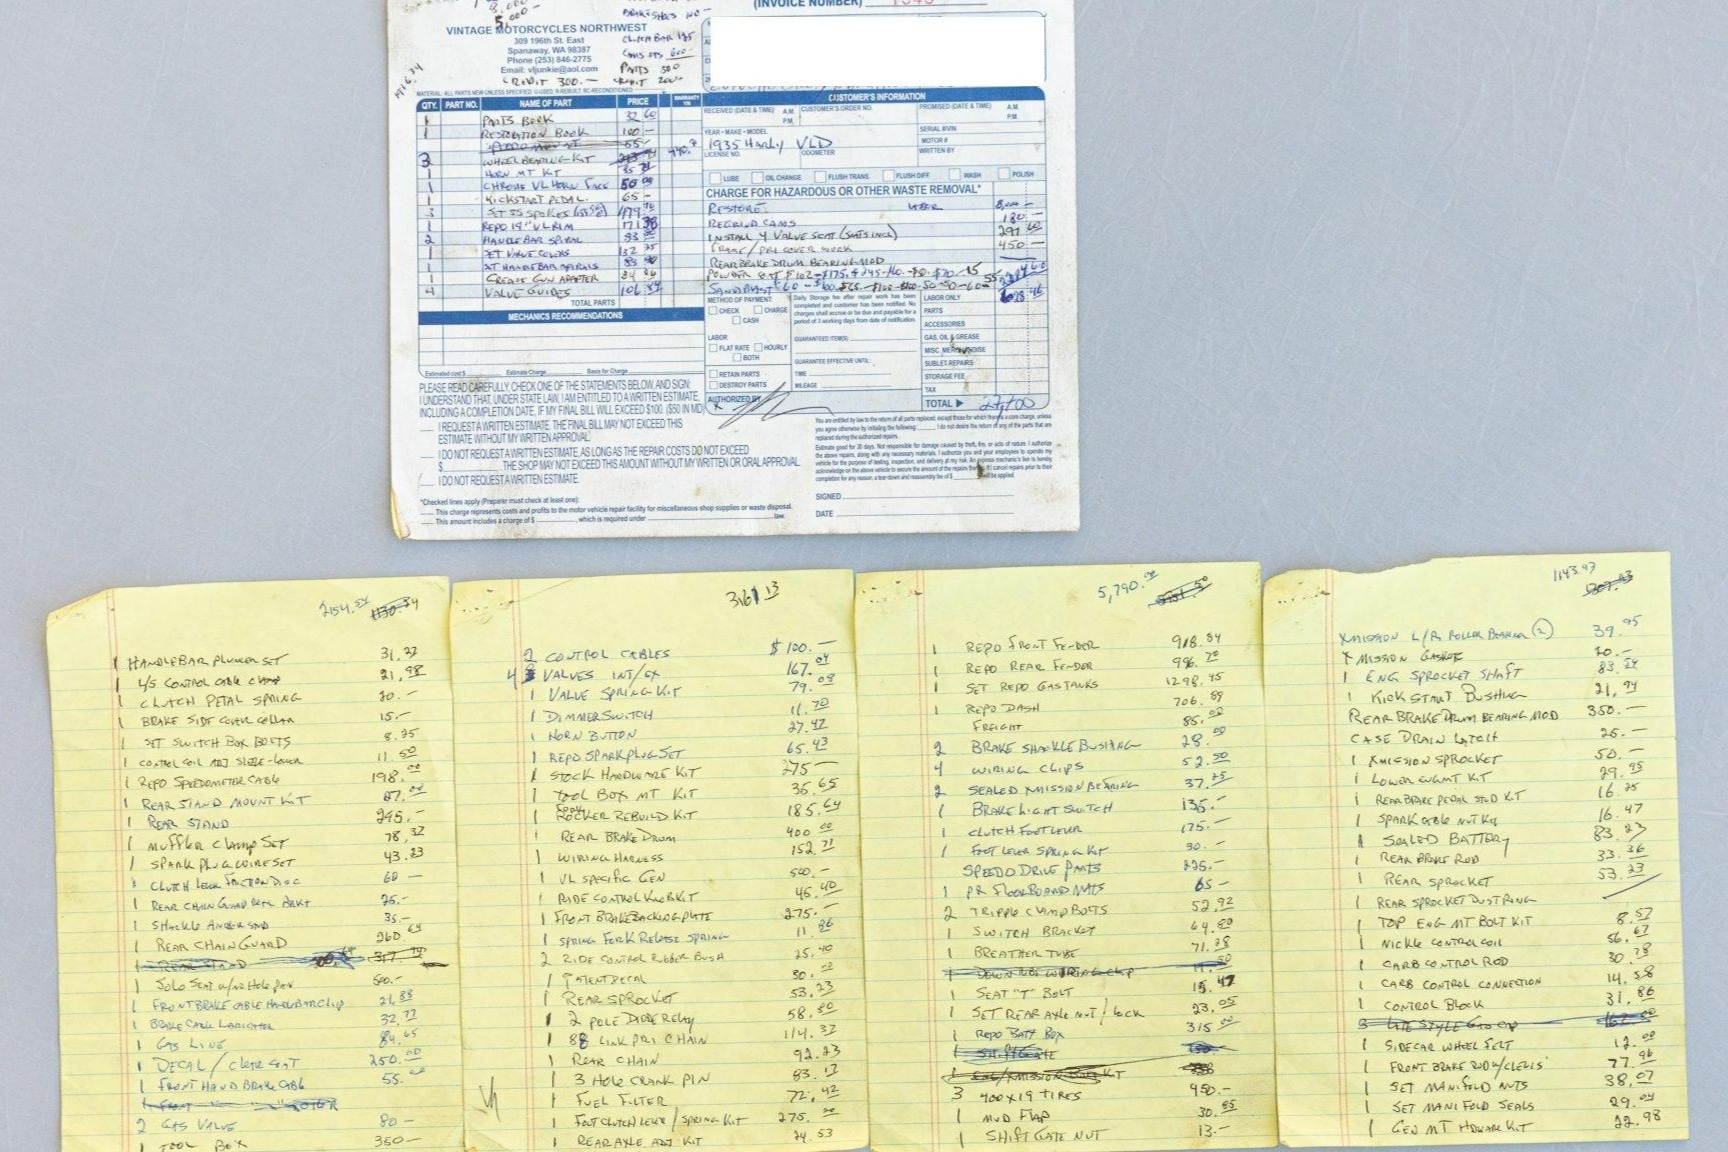 (INVOICE NUMBER)
5,000 —
VINTAGE MOTORCYCLES NORTHWEST
309 196th St. East
Spanaway, WA 98387
Phone (253) 846-2775
Email: vljunkie@aol.com
CREDIT 300.—
CLUTCH BAR 125
PARTS 500
MATERIAL: ALL PARTS NEW UNLESS SPECIFIED: U-USED, R-REBUILT, RC-RECONDITIONED
QTY. PART NO. NAME OF PART PRICE WARRANTY Y/N
1 PARTS BOOK 32 60
1 RESTORATION BOOK 100 —
3 WHEEL BEARING KIT
1 HORN MT KIT
1 CHROME VL HORN FACE 50 00
1 KICKSTART PEDAL. 65 —
3 SET SS SPOKES
1 REPO 19" VL RIM
2 HANDLEBAR SPIRAL
1 SET VALVE COVERS
1 ST HANDLEBAR SPIRALS
1 GREASE GUN ADAPTER
4 VALVE GUIDES 106
TOTAL PARTS
MECHANICS RECOMMENDATIONS
Estimated cost $ Estimate Charge Basis for Charge
PLEASE READ CAREFULLY, CHECK ONE OF THE STATEMENTS BELOW, AND SIGN:
I UNDERSTAND THAT, UNDER STATE LAW, I AM ENTITLED TO A WRITTEN ESTIMATE,
INCLUDING A COMPLETION DATE, IF MY FINAL BILL WILL EXCEED $100. ($50 IN MD)
I REQUEST A WRITTEN ESTIMATE. THE FINAL BILL MAY NOT EXCEED THIS
ESTIMATE WITHOUT MY WRITTEN APPROVAL.
I DO NOT REQUEST A WRITTEN ESTIMATE, AS LONG AS THE REPAIR COSTS DO NOT EXCEED
$ . THE SHOP MAY NOT EXCEED THIS AMOUNT WITHOUT MY WRITTEN OR ORAL APPROVAL.
I DO NOT REQUEST A WRITTEN ESTIMATE.
*Checked lines apply (Preparer must check at least one):
This charge represents costs and profits to the motor vehicle repair facility for miscellaneous shop supplies or waste disposal.
This amount includes a charge of $ , which is required under law.
CUSTOMER'S INFORMATION
RECEIVED (DATE & TIME) A.M. P.M. CUSTOMER'S ORDER NO. PROMISED (DATE & TIME) A.M. P.M.
YEAR - MAKE - MODEL SERIAL #/VIN
1935 Harley VLD MOTOR #
LICENSE NO. ODOMETER WRITTEN BY
LUBE OIL CHANGE FLUSH TRANS. FLUSH DIFF. WASH POLISH
CHARGE FOR HAZARDOUS OR OTHER WASTE REMOVAL*
RESTORE: LABOR 8,000 —
REGRIND CAMS 180 —
INSTALL 4 VALVE SEAT (SEATS INCL) 291 60
FRAME / PRI COVER WORK 450 —
REAR BRAKE DRUM BEARING MOD
POWDER COAT
SANDBLAST
METHOD OF PAYMENT:
CHECK CHARGE
CASH
LABOR
FLAT RATE HOURLY
BOTH
RETAIN PARTS
DESTROY PARTS
AUTHORIZED BY
X
Daily Storage fee after repair work has been
completed and customer has been notified. No
charges shall accrue or be due and payable for a
period of 3 working days from date of notification.
GUARANTEED ITEM(S)
GUARANTEE EFFECTIVE UNTIL:
TIME
MILEAGE
LABOR ONLY
PARTS
ACCESSORIES
GAS, OIL & GREASE
MISC. MERCHANDISE
SUBLET REPAIRS
STORAGE FEE
TAX
TOTAL ▶ 27,400
You are entitled by law to the return of all parts replaced, except those for which there is a core charge, unless
you agree otherwise by initialing the following: I do not desire the return of any of the parts that are
replaced during the authorized repairs.
Estimate good for 30 days. Not responsible for damage caused by theft, fire, or acts of nature. I authorize
the above repairs, along with any necessary materials. I authorize you and your employees to operate my
vehicle for the purpose of testing, inspection, and delivery at my risk. An express mechanic's lien is hereby
acknowledged on the above vehicle to secure the amount of the repairs thereto. If I cancel repairs prior to their
completion for any reason, a tear-down and reassembly fee of $ will be applied.
SIGNED
DATE
1 HANDLEBAR PLUNGER SET 31.22
1 L/S CONTROL CABLE CLAMP 21.98
1 CLUTCH PETAL SPRING 20.—
1 BRAKE SIDE COVER COLLAR 15.—
1 SET SWITCH BOX BOLTS 8.75
1 CONTROL COIL ADJ SLEEVE-LOWER 11.50
1 REPO SPEEDOMETER CABLE 198.00
1 REAR STAND MOUNT KIT 27.00
1 REAR STAND 295.—
1 MUFFLER CLAMP SET 78.32
1 SPARK PLUG WIRE SET 43.23
1 CLUTCH LEVER FRICTION DISC 60 —
1 REAR CHAIN GUARD REAR BRKT 25.—
1 SHACKLE ANDERSTUD 35.—
1 REAR CHAIN GUARD 260.64
1 REAR STAND
1 SOLO SEAT w/no Hole pan 500.—
1 FRONT BRAKE CABLE HANDLEBAR CLIP 21.88
1 BRAKE CABLE LUBRICATOR 32.77
1 GAS LINE 84.65
1 DECAL / CLEAR COAT 250.00
1 FRONT HAND BRAKE CABLE 55.00
2 GAS VALVE 80 —
1 TOOL BOX 350 —
3161.13
2 CONTROL CABLES $100.—
4 VALVES INT/EX 167.04
1 VALVE SPRING KIT 79.08
1 DIMMER SWITCH 11.70
1 HORN BUTTON 27.47
1 REPO SPARKPLUG SET 65.43
1 STOCK HARDWARE KIT 275 —
1 TOOL BOX MT KIT 36.65
1 ROCKER REBUILD KIT 185.64
1 REAR BRAKE DRUM 400.00
1 WIRING HARNESS 152.71
1 VL SPECIFIC GEN 500.—
1 RIDE CONTROL KNOB KIT 46.40
1 FRONT BRAKE BACKING PLATE 275.—
1 SPRING FORK RELEASE SPRING 11.86
2 RIDE CONTROL RUBBER BUSH 25.40
1 PATENT DECAL 30.00
1 REAR SPROCKET 53.23
1 2 POLE DIODE RELAY 58.50
1 88 LINK PRI CHAIN 114.32
1 REAR CHAIN 92.23
1 3 HOLE CRANK PIN 83.13
1 FUEL FILTER 72.42
1 FOOT CLUTCH LEVER / SPRING KIT 275.00
1 REAR AXLE ADJ KIT 24.53
5,790.00
1 REPO FRONT FENDER 918.84
1 REPO REAR FENDER 996.70
1 SET REPO GAS TANKS 1298.45
1 REPO DASH 706.89
FREIGHT 85.00
2 BRAKE SHACKLE BUSHING 28.00
4 WIRING CLIPS 52.50
2 SEALED XMISSION BEARING 37.25
1 BRAKE LIGHT SWITCH 135.—
1 CLUTCH FOOT LEVER 175.—
1 FOOT LEVER SPRING KIT 30.—
SPEEDO DRIVE PARTS 225.—
1 PR FLOORBOARD MATS 65 —
2 TRIPPLE CLAMP BOLTS 52.92
1 SWITCH BRACKET 64.80
1 BREATHER TUBE 71.28
1 DOWN TUBE WIRING CLIP
1 SEAT "T" BOLT 15.47
1 SET REAR AXLE NUT / LOCK 23.05
1 REPO BATT BOX 315.00
1 SHIFT GATE
3 400X19 TIRES 450.—
1 MUD FLAP 30.85
1 SHIFT GATE NUT 13.—
1143.43
XMISSION L/R ROLLER BEARING (2) 39.95
XMISSION GASKET 20.—
1 ENG SPROCKET SHAFT 83.24
1 KICKSTART BUSHING 21.94
REAR BRAKE DRUM BEARING MOD 350.—
CASE DRAIN LATCH 25.—
1 XMISSION SPROCKET 50.—
1 LOWER ENGMT KIT 29.95
1 REAR BRAKE PEDAL STUD KIT 16.25
1 SPARK CABLE NUT KIT 16.47
1 SEALED BATTERY 83.23
1 REAR BRAKE ROD 33.36
1 REAR SPROCKET 53.23
1 REAR SPROCKET DUST RING
1 TOP ENG MT BOLT KIT 8.57
1 NICKLE CONTROL COIL 56.67
1 CARB CONTROL ROD 30.78
1 CARB CONTROL CONNECTION 14.58
1 CONTROL BLOCK 31.86
3 LATE STYLE GAS CAP
1 SIDECAR WHEEL FELT 12.00
1 FRONT BRAKE ROD w/CLEVIS 77.96
1 SET MANIFOLD NUTS 38.07
1 SET MANIFOLD SEALS 29.04
1 GEN MT HDWARE KIT 22.98